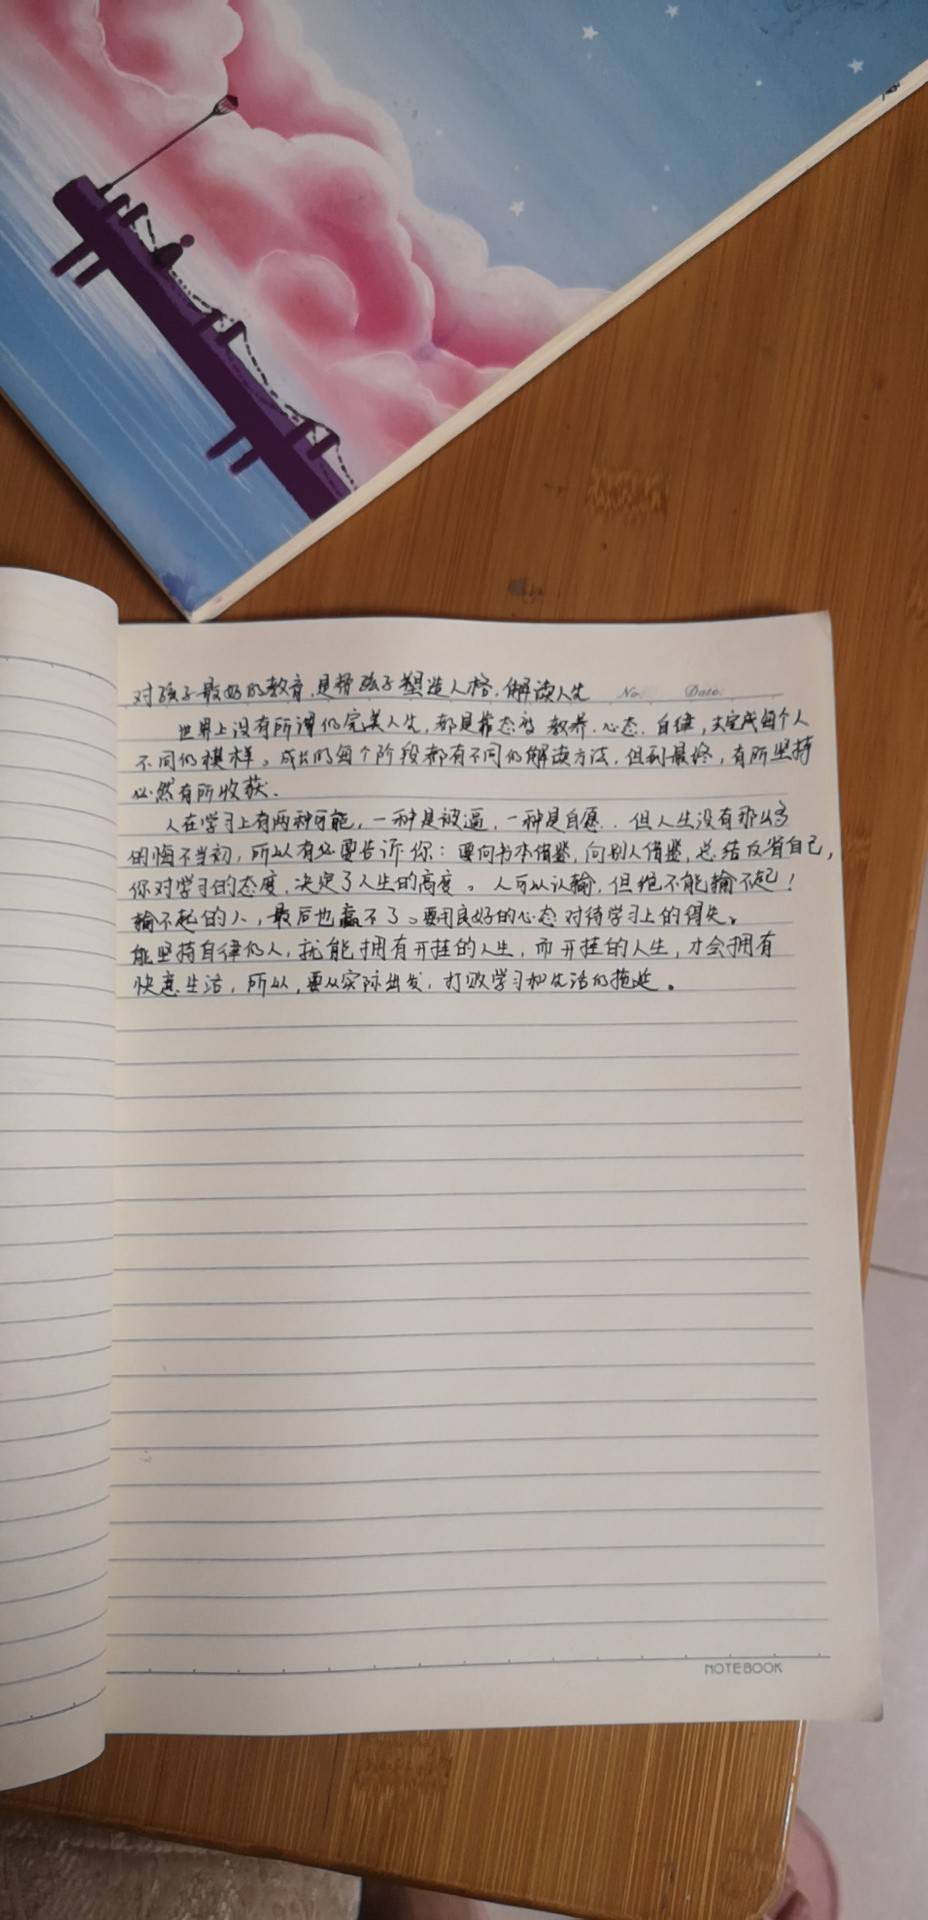 对孩子最好的教育,是帮孩子塑造人格,解读人生 No: Date:
世界上没有所谓的完美人生,都是靠 教养、心态、自律,去完成每个人
不同的模样。成长的每个阶段都有不同的解读方法,但到最终,有所坚持
必然有所收获.
人在学习上有两种可能,一种是被逼,一种是自愿..但人生没有那么多
的悔不当初,所以有必要告诉你:要向书本借鉴,向别人借鉴,总结反省自己,
你对学习的态度,决定了人生的高度。人可以认输,但绝不能输不起!
输不起的人,最后也赢不了。要用良好的心态对待学习上的得失。
能坚持自律的人,就能拥有开挂的人生,而开挂的人生,才会拥有
快意生活,所以,要从实际出发,打败学习和生活的拖延。
NOTEBOOK